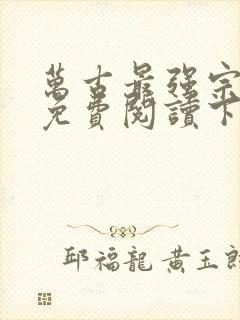 萬古最强宗
免費閱讀下
邱福龍 黄玉郎